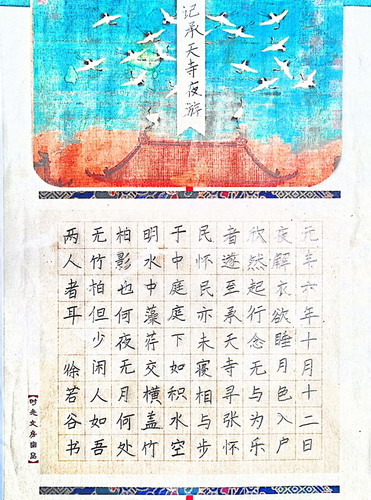 记承天寺夜游
元丰六年十月十二日
夜解衣欲睡月色入户
欣然起行念无与为乐
者遂至承天寺寻张怀
民怀民亦未寝相与步
于中庭庭下如积水空
明水中藻荇交横盖竹
柏影也何夜无月何处
无竹柏但少闲人如吾
两人者耳 徐若谷书